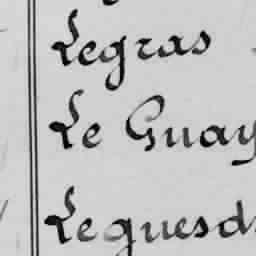 Legras
Le Guay
Leguesd